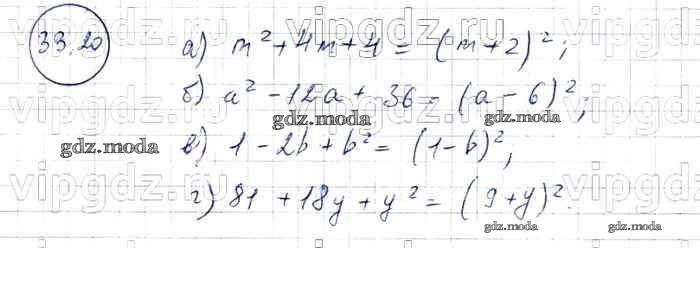 33.20
а) m² + 4m + 4 = (m + 2)²;
б) a² - 12a + 36 = (a - 6)²;
в) 1 - 2b + b² = (1 - b)²;
г) 81 + 18y + y² = (9 + y)².
vipgdz.ru vipgdz.ru
vipgdz.ru vipgdz.ru
gdz.moda gdz.moda
gdz.moda
vipgdz.ru vipgdz.ru
gdz.moda gdz.moda